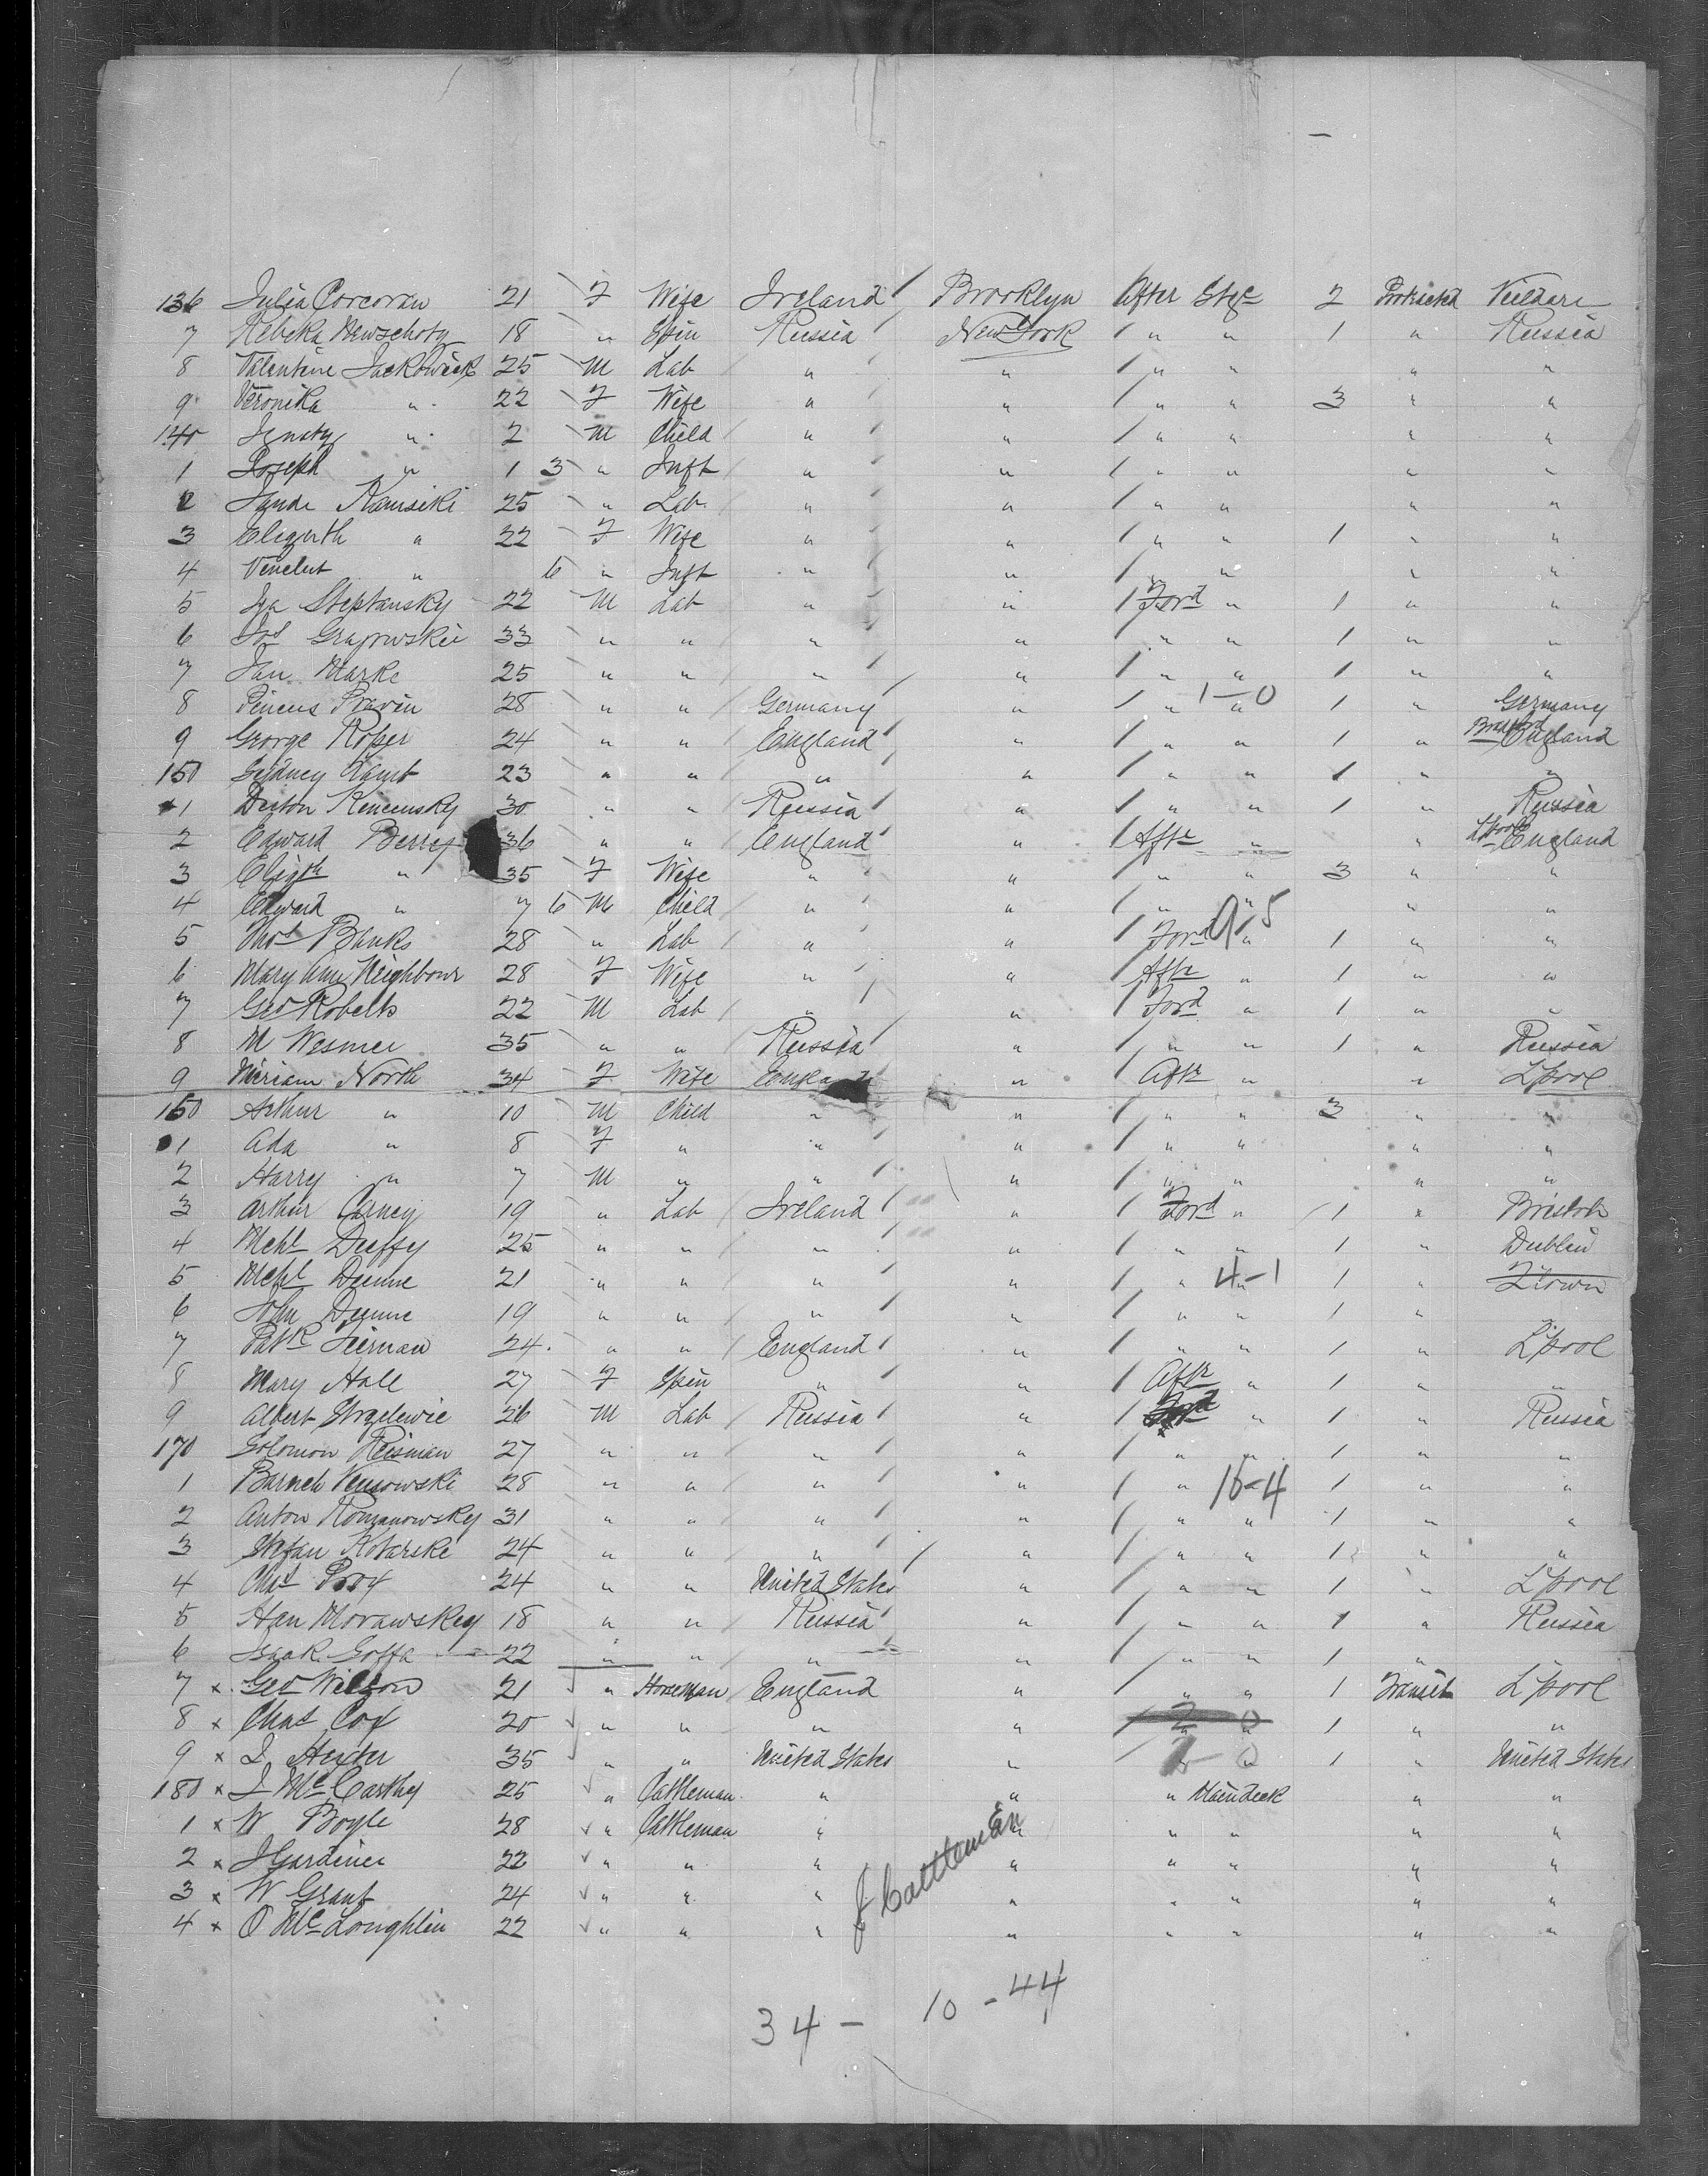 136 Julia Corcoran 21 F Wife Ireland Brooklyn After Stge 2 Protracted
7 Rebeka 18 " Spin Russia New York " " 1 " Russia
8 Valentine 25 M Lab " " " " " "
9 Veronika " 22 F Wife " " " " 3 " "
140 Ignatz " 2 M Child " " " " " "
1 Joseph " 1 3 " Inft " " " " " "
2 Kamsiki 25 " Lab " " " " " "
3 " 22 F Wife " " " " 1 " "
4 " 6 " Inft " " " " " "
5 Steptansky 22 M Lab " " Ford " 1 " "
6 33 " " " " " " 1 " "
7 Jan Marke 25 " " " " " " 1 " "
8 Pincus 28 " " Germany " " " 1-0 1 " Germany
9 George Roper 24 " " England " " " 1 " England
150 Sydney 23 " " " " " " 1 " "
1 30 " " Russia " " " 1 " Russia
2 Edward Berry 36 " " England " Aftr " " L'pool England
3 Elizth " 35 F Wife " " " " 3 " "
4 Edward " 7 6 M Child " " " " " "
5 Thos Banks 28 " Lab " " Ford " 9-5 1 " "
6 Mary Ann Neighbour 28 F Wife " " Aftr " 1 " "
7 Geo Roberts 22 M Lab " " Ford " 1 " "
8 M Wesmer 35 " " Russia " " " 1 " Russia
9 Miriam North 34 F Wife " Aftr " " L'pool
160 Arthur " 10 M Child " " " " 3 " "
1 Ada " 8 F " " " " " " "
2 Harry " 7 M " " " " " " "
3 Arthur Carney 19 " Lab Ireland " Ford " 1 " Bristol
4 Mchl Duffy 25 " " " " " " 1 " Dublin
5 Mchl Dunne 21 " " " " " " 4-1 1 " Qtown
6 John Dunne 19 " " " " " " 1 "
7 Patk Tiernan 24 " " England " " " 1 " L'pool
8 Mary Hall 27 F Spin " " Aftr " 1 " "
9 Albert Strzelewic 26 M Lab Russia " Ford " 1 " Russia
170 Solomon Reisman 27 " " " " " " 1 " "
1 28 " " " " " " 16-4 1 " "
2 Anton Romanowsky 31 " " " " " " 1 " "
3 Stefan Kotarske 24 " " " " " " 1 " "
4 Chas 24 " " United States " " " 1 " L'pool
5 Morawskey 18 " " Russia " " " 1 " Russia
6 Isaak Goffa 22 " " " " " " 1 "
7 x Geo Wilson 21 " Horseman England " " " 1 Transit L'pool
8 x Chas Cox 20 " " " " 2 0 1 " "
9 x 35 " " United States " " 1 " United States
180 x J McCarthy 25 " Cattleman " " " Maindeck " "
1 x W Boyle 28 " Cattleman " " " " " "
2 x J Gardiner 22 " " " " " " " "
3 x W Grant 24 " " " " " " " "
4 x O McLoughlin 22 " " " " " " " "
Cattleman
34 - 10 - 44